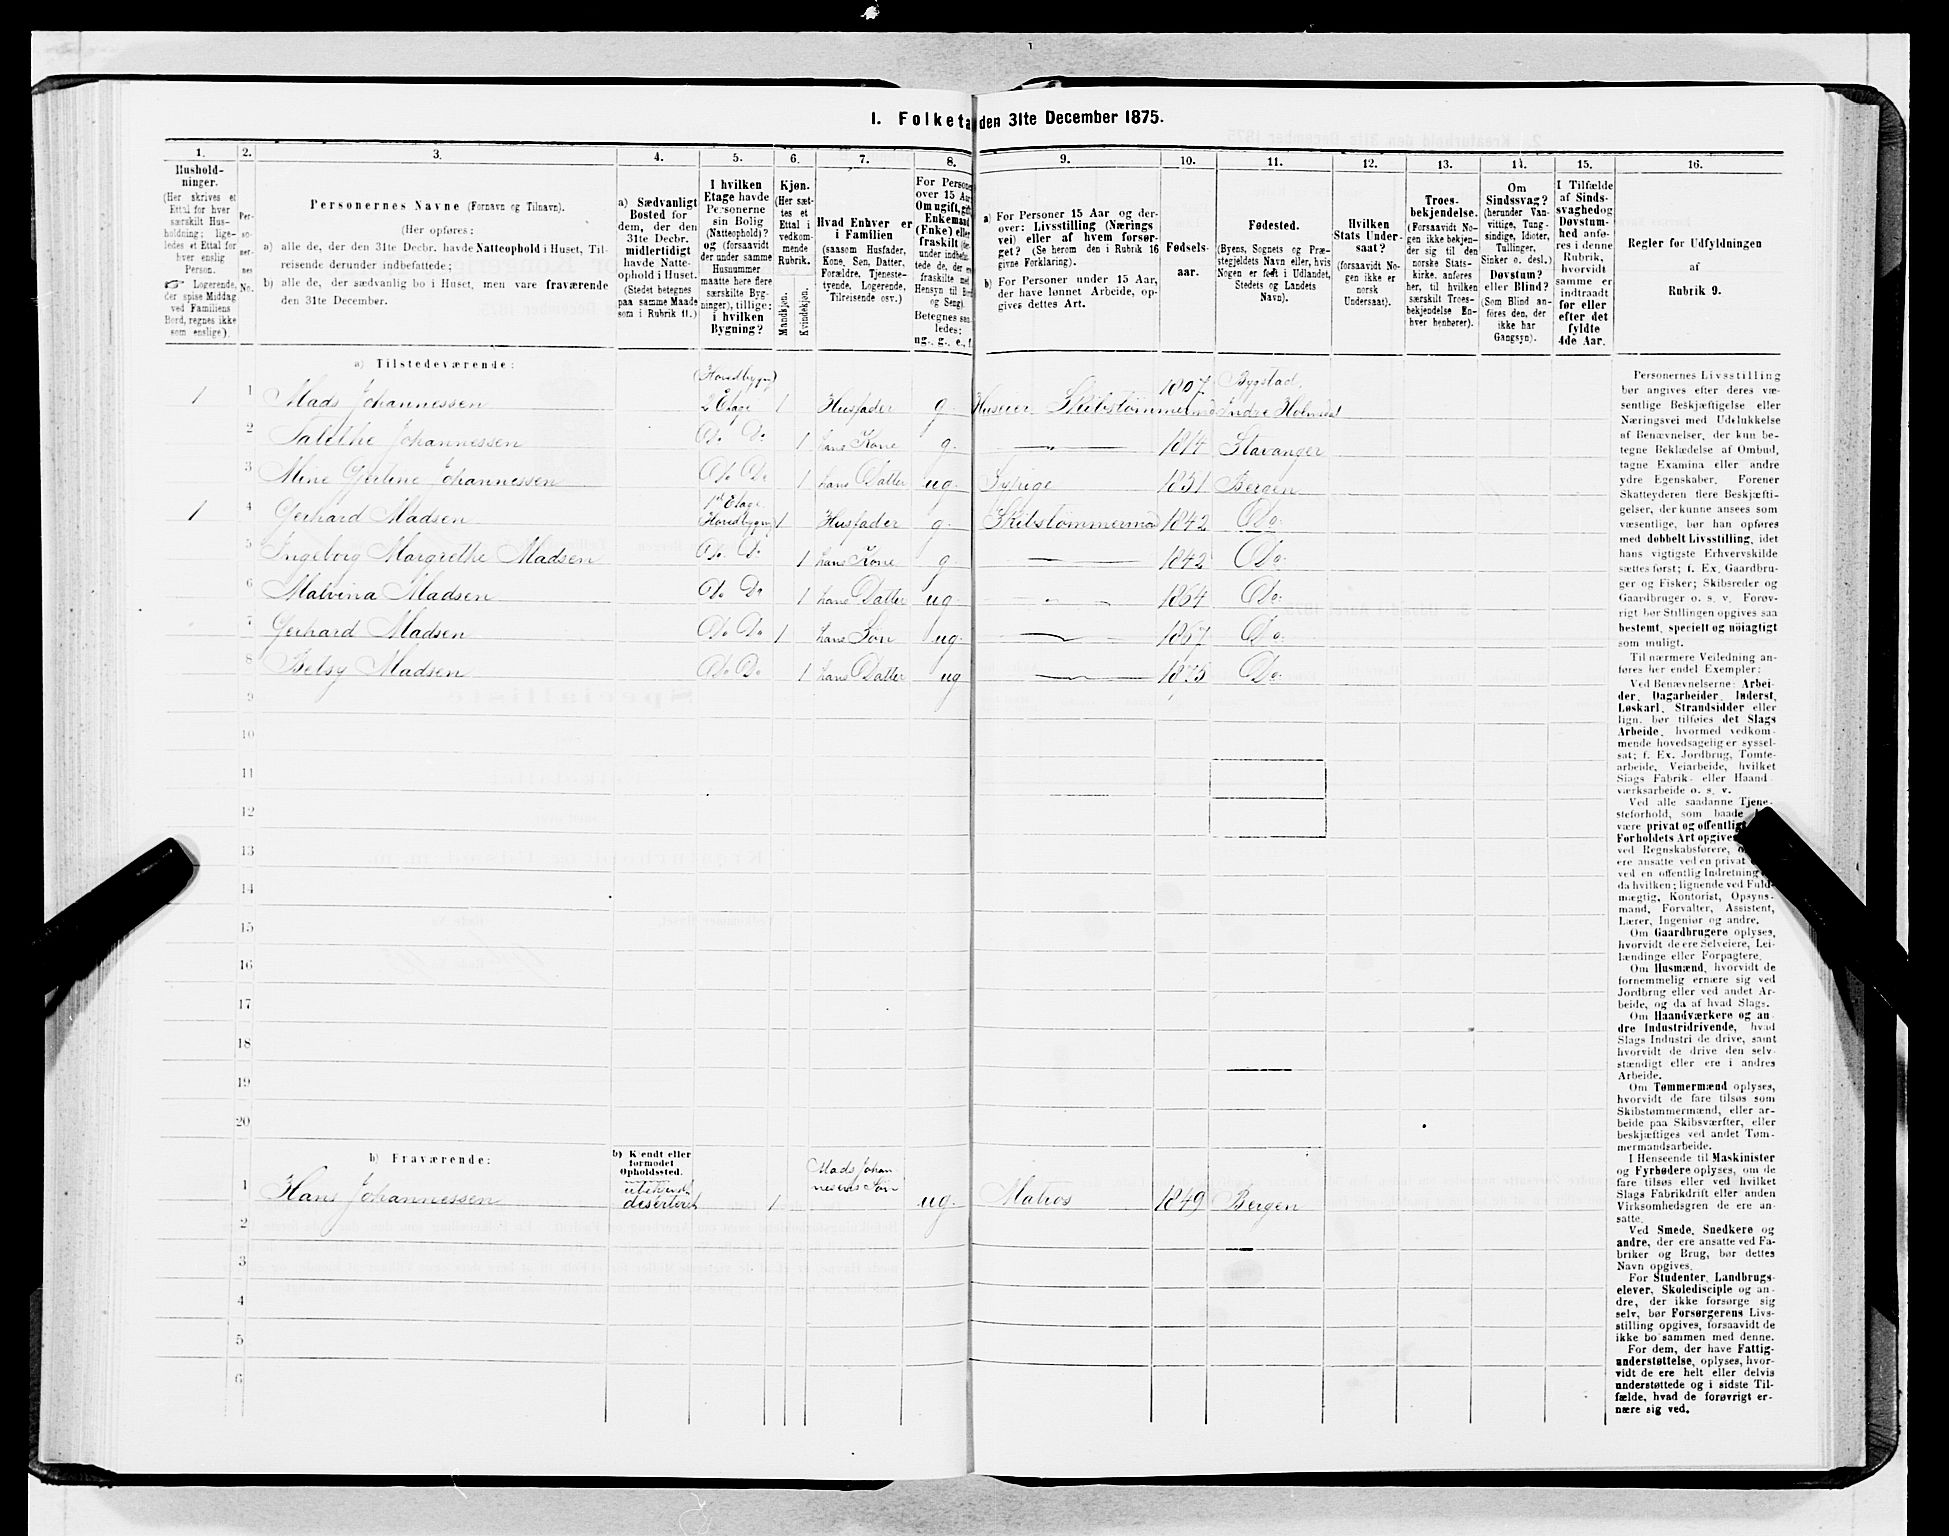 I. Folketæ
den 31te December 1875.
1.
2.
3.
4.
5.
6.
7.
8.
9.
10.
11.
12.
13.
14.
15.
16.
Hushold-
ninger.
(Her skrives et
Ettal for hver
særskilt Hus-
holdning; lige-
ledes et Ettal for
hver enslig
Person.
☞ Logerende,
der spise Middag
ved Familiens
Bord, regnes ikke
som enslige).
Per-
so-
ner-
nes
No.
Personernes Navne (Fornavn og Tilnavn).
(Her opføres:
a) alle de, der den 31te Decbr. havde Natteophold i Huset, Til-
reisende derunder indbefattede;
b) alle de, der sædvanlig bo i Huset, men vare fraværende
den 31te December.
a) Sædvanligt
Bosted for
dem, der den
31te Decbr.
midlertidigt
havde Natte-
ophold i Huset.
(Stedet betegnes
paa samme Maade
som i Rubrik 11.)
I hvilken
Etage havde
Personerne
sin Bolig
(Natteophold)?
og (forsaavidt
der under samme
Husnummer
maatte here flere
særskilte Byg-
ninger), tillige:
i hvilken
Bygning?
Kjøn.
(Her sæt-
tes et
Ettal i
vedkom-
mende
Rubrik.
Mandkjøn.
Kvindekjøn.
Hvad Enhver er
i Familien
(saasom Husfader,
Kone, Søn, Datter,
Forældre, Tjeneste-
tyende, Logerende,
Tilreisende osv.)
For Persone
over 15 Aa
Om ugift, gif
Enkemand
(Enke) eller
fraskilt (der
under indbefat-
tede de, der er
fraskilte med
Hensyn til Bord
og Seng).
Betegnes saa
ledes:
ug., g., e., f.
a) For Personer 15 Aar og der-
over: Livsstilling (Nærings
vei) eller af hvem forsør-
get? (Se herom den i Rubrik 16
givne Forklaring).
b) For Personer under 15 Aar,
der have lønnet Arbeide, op-
gives dettes Art.
Fødsels-
aar.
Fødested.
(Byens, Sognets og Præ-
stegjeldets Navn eller, hvis
Nogen er født i Udlandet,
Stedets og Landets
Navn).
Hvilken
Stats Under-
saat?
(forsaavidt No-
gen ikke er
norsk
Undersaat).
Troes-
bekjendelse.
(Forsaavidt No-
gen ikke bekjen-
der sig til den
norske Stats-
kirke, anføres
her, til hvilken
særskilt Troes-
bekjendelse En-
hver henhører).
Om
Sindssvag?
(herunder Van-
vittige, Tung-
sindige, Idioter,
Tullinger,
Sinker o. desl.)
Døvstum?
eller Blind?
(Som Blind an-
føres den, der
ikke har
Gangsyn).
I Tilfælde
af Sinds-
svaghed og
Døvstum-
hed anfø-
res i denne
Rubrik,
hvorvidt
samme er
indtraadt
før eller
efter det
fyldte
4de Aar.
Regler for Udfyldningen
af
Rubrik 9.
a) Tilstedeværende:
1 1 Mads Johannessen (Hovedbygn) 2 Etage 1 Husfader g. Huseier Skibstømmermd 1807 Bygstad, Indre Holmedal
2 Talethe Johannessen Do Do 1 hans Kone g. — " — 1814 Stavanger
3 Mine Gertine Johannessen Do Do 1 hans Datter ug. Sypige 1851 Bergen
1 4 Gerhard Madsen 1st Etage Hovedbygn 1 Husfader g. Skibstømmermd 1842 Do
5 Ingeborg Margrethe Madsen Do Do 1 hans Kone g. — 1842 Do
6 Malvina Madsen Do Do 1 hans Datter ug. — " — 1864 Do
7 Gerhard Madsen Do Do 1 hans Søn ug. — 1867 Do
8 Betsy Madsen Do Do 1 hans Datter ug — 1875 Do
9
10
11
12
13
14
15
16
17
18
19
20
b) Fraværende:
b) Kjendt eller
formodet
Opholdssted.
1 Hans Johannessen ubekjendt deserteret 1 Mads Johannesens Søn ug. Matros 1849 Bergen
2
3
4
5
6
Personernes Livsstilling
bør angives efter deres væ-
sentlige Beskjæftigelse eller
Næringsvei med Udelukkelse
af Benævnelser, der kun be-
tegne Beklædelse af Ombud,
tagne Examina eller andre
ydre Egenskaber. Forener
Skatteyderen flere Beskjæfti-
gelser, der kunne ansees som
væsentlige, bør han opføres
med dobbelt Livsstilling, idet
hans vigtigste Erhvervskilde
sættes først; f. Ex. Gaardbru-
ger og Fisker; Skibsreder og
Gaardbruger o. s. v. Forøv-
rigt bør Stillingen opgives saa
bestemt, specielt og nöiagtigt
som muligt.
Til nærmere Veiledning an-
føres her endel Exempler:
Ved Benævnelserne: Arbei-
der, Dagarbeider, Inderst,
Løskarl, Strandsidder eller
lign. bør tilføies det Slags
Arbeide, hvormed vedkom-
mende hovedsagelig er syssel-
sat; f. Ex. Jordbrug, Tomte-
arbeide, Veiarbeide, hvilket
Slags Fabrik- eller Haand-
værksarbeide o. s. v.
Ved alle saadanne Tjene-
steforhold, som baade
være privat og offentlig
Forholdets Art opgives
ved Regnskabsførere,
ere ansatte ved en privat
ved en offentlig Indretning
da hvilken; lignende ved Fuld-
mægtig, Kontorist, Opsyns-
mand, Forvalter, Assistent,
Lærer, Ingeniør og andre.
Om Gaardbrugere oplyses,
hvorvidt de ere Selveiere, Lei-
lændinge eller Forpagtere.
Om Husmænd, hvorvidt de
fornemmelig ernære sig ved
Jordbrug eller ved andet Ar-
beide, og da af hvad Slags.
Om Haandværkere og an-
dre Industridrivende, hvad
Slags Industri de drive, samt
hvorvidt de drive den selv-
stændigt eller ere i andres
Arbeide.
Om Tømmermænd oplyses,
hvorvidt de fare tilsøs som
Skibstømmermænd, eller ar-
beide paa Skibsværfter, eller
beskjæftiges ved andet Tøm-
mermandsarbeide.
I Henseende til Maskinister
og Fyrbødere oplyses, om de
fare tilsøs eller ved hvilket
Slags Fabrikdrift eller anden
Virksomhedsgren de ere an-
satte.
Ved Smede, Snedkere og
andre, der ere ansatte ved Fa-
briker og Brug, bør dettes
Navn opgives.
For Studenter, Landbrugs-
elever, Skoledisciple og an-
dre, der ikke forsørge sig
selv, bør Forsørgerens Livs-
stilling opgives, forsaavidt de
ikke bo sammen med denne.
For dem, der have Fattig-
understøttelse, oplyses, hvor-
vidt de ere helt eller delvis
understøttede og i sidste Til-
fælde, hvad de forøvrigt er-
nære sig ved.